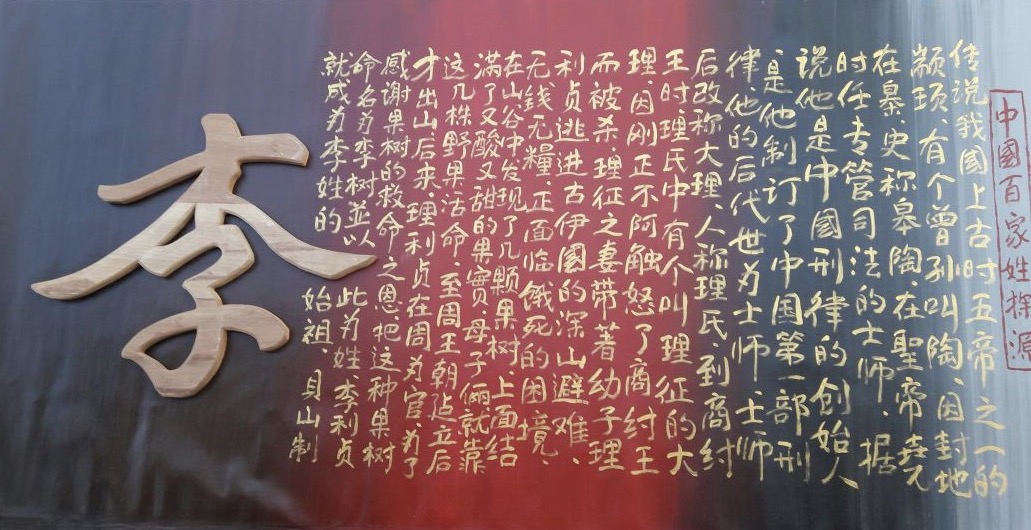 中國百家姓探源
传说我國上古时五帝之一的
颛顼、有个曾孙叫陶、因封地
在皋、史称皋陶、在聖帝尧
时任专管司法的士师、据
说他是中國刑律的创始人
是他制订了中国第一部刑
律、他的后代世为士师、士师
后改称大理、人称理氏到商纣
王时理氏中有个叫理征的大
理、因刚正不阿触怒了商纣王
而被杀、理征之妻带著幼子理
利贞逃进古伊國的深山避难、
无錢无糧、正面临饿死的困境、
在山谷中发现了几颗果树、上面结
满了又酸又甜的果實、母子俩就靠
这几株野果活命、至周王朝站立后
才出山、后来理利贞在周为官、为了
感谢果树的救命之恩、把这种果树
命名为李树並以此为姓李利贞
就成为李姓的始祖、貝山制
李